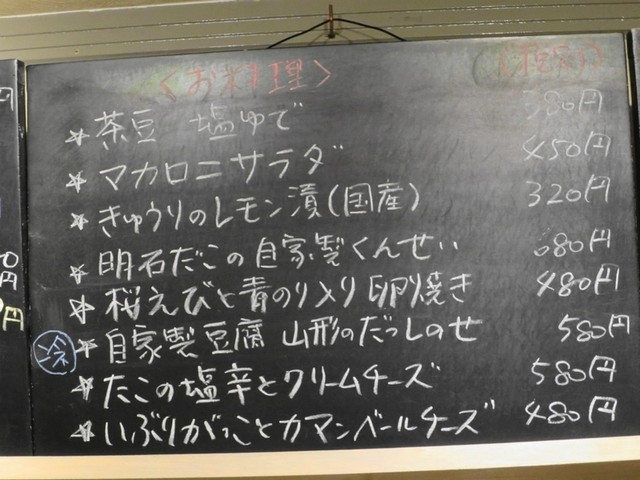 <お料理> (税別)
☆茶豆 塩ゆで 380円
☆マカロニサラダ 450円
☆きゅうりのレモン漬(国産) 320円
☆明石だこの自家製くんせい 680円
☆桜えびと青のり入り卵焼き 480円
冷☆自家製豆腐 山形のだっしのせ 580円
☆たこの塩辛とクリームチーズ 580円
☆いぶりがっことカマンベールチーズ 480円